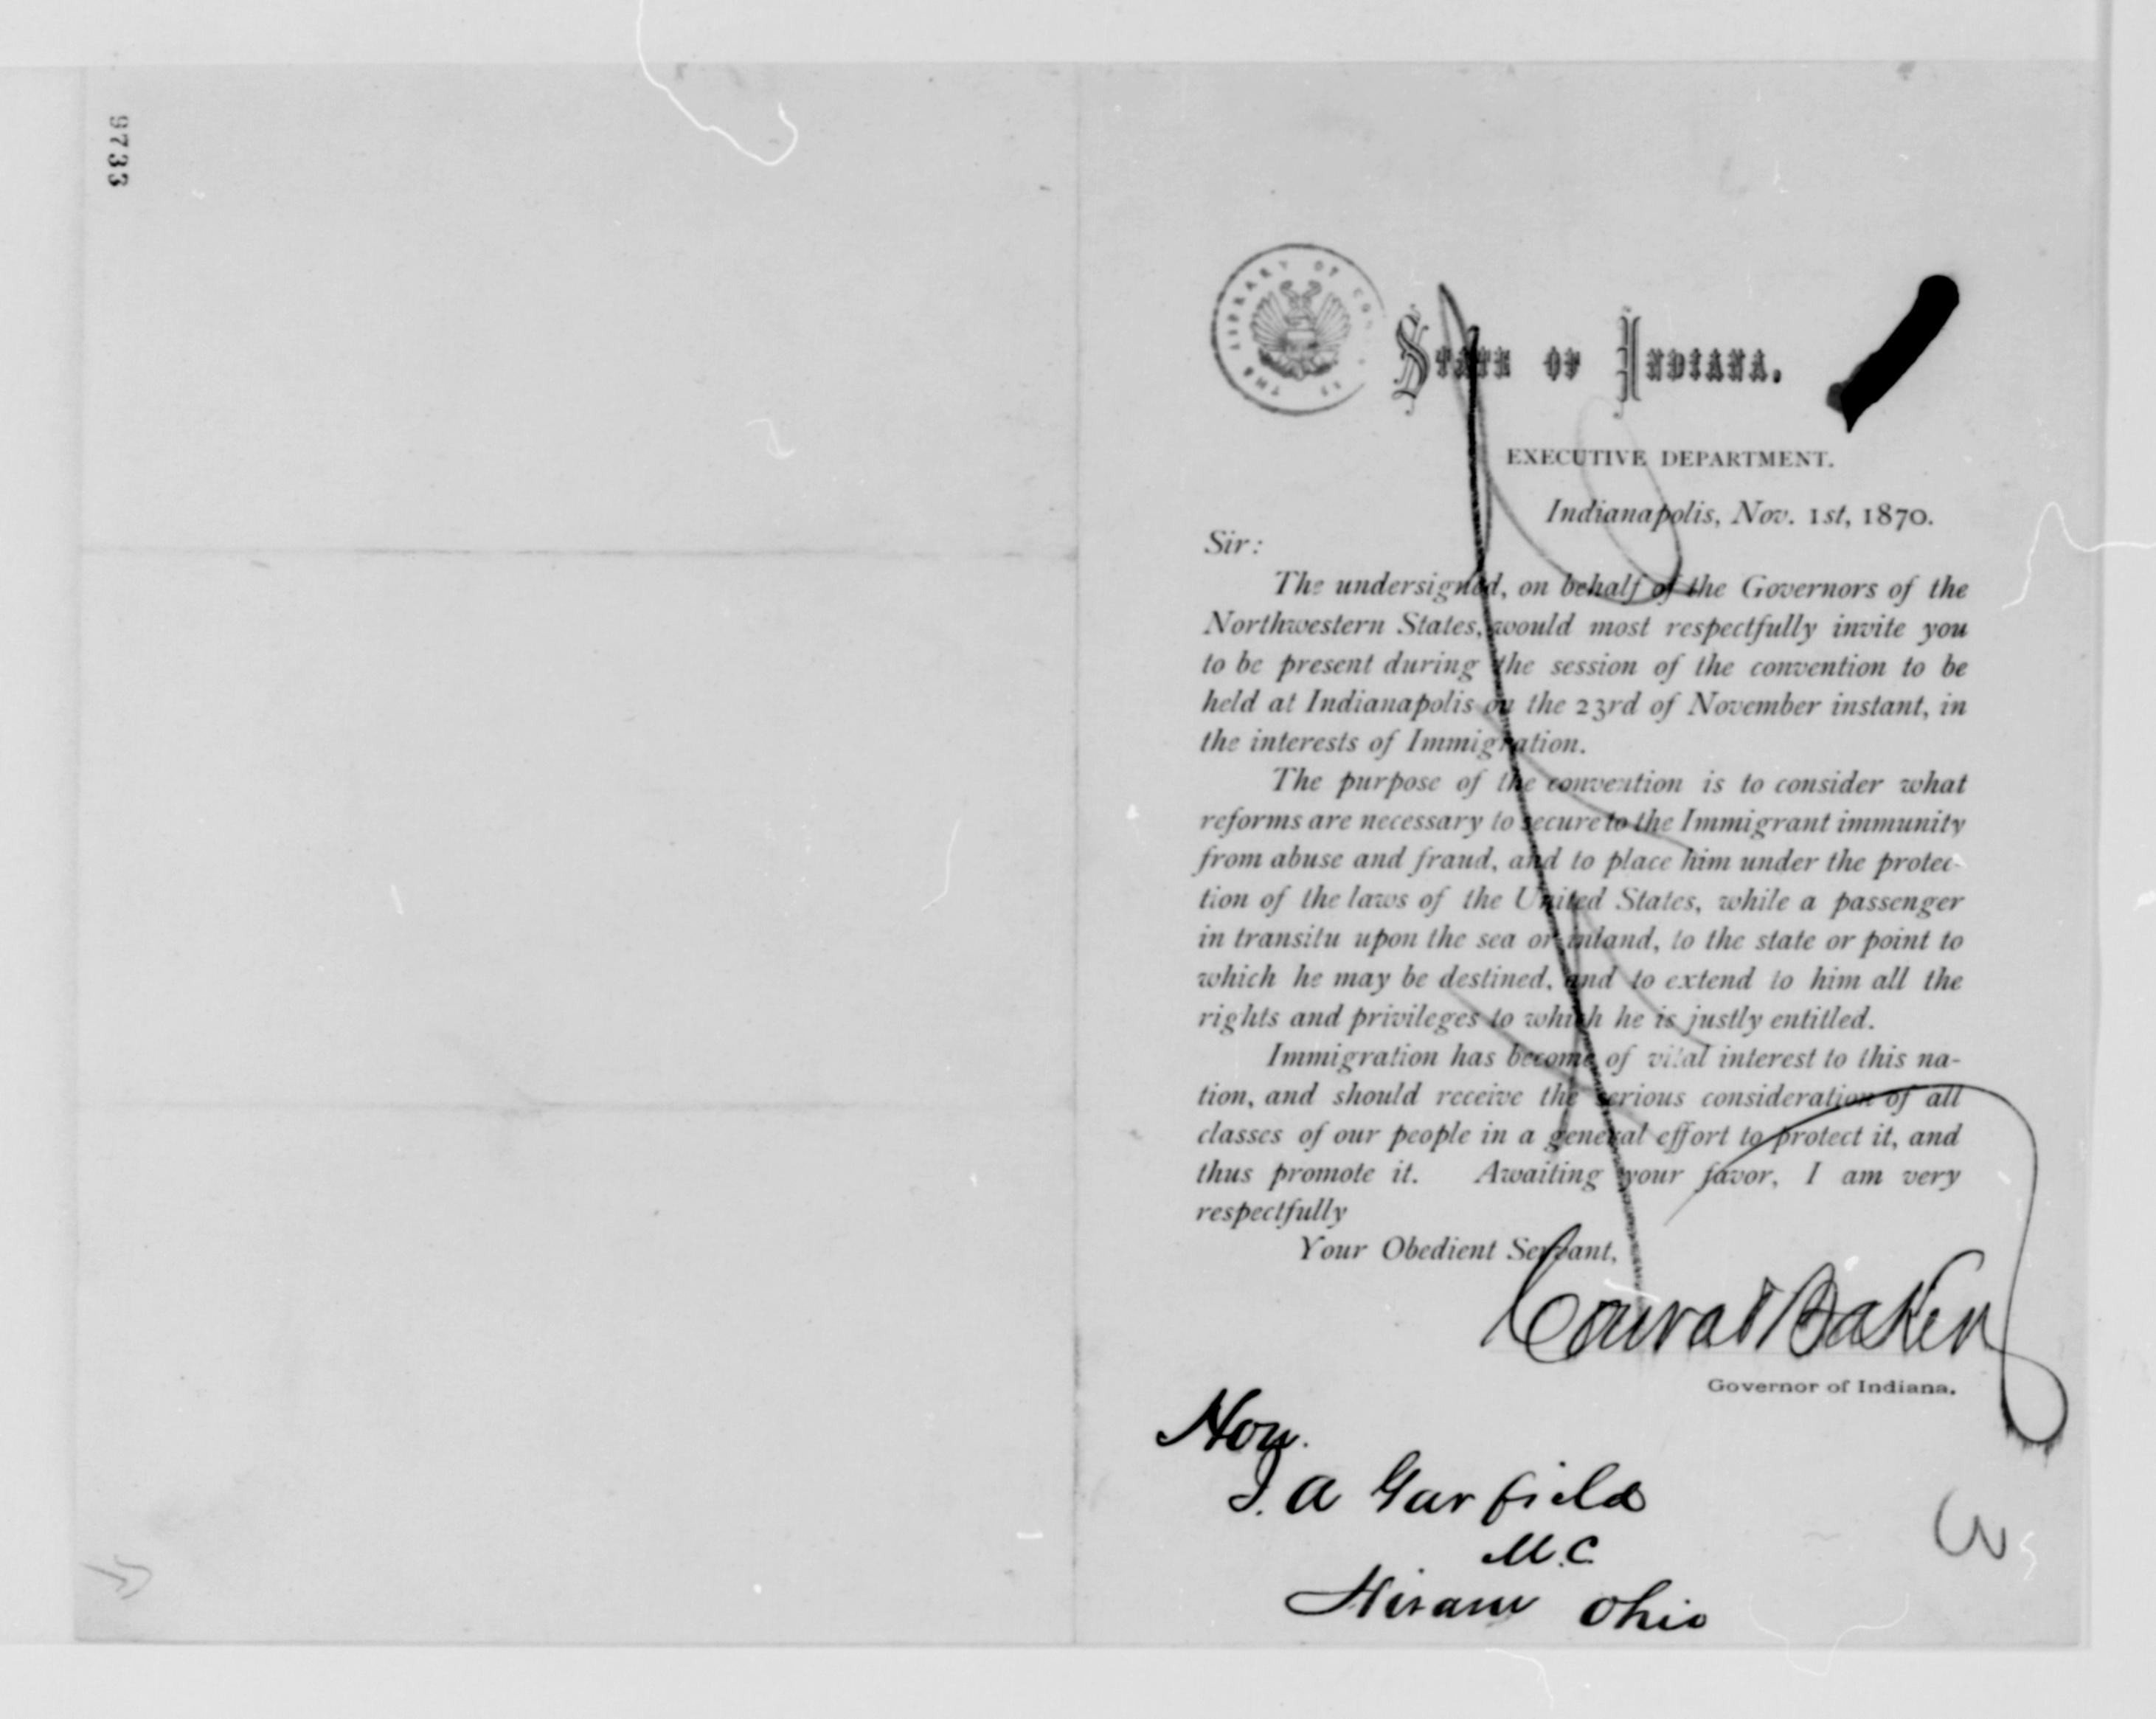 9733
THE LIBRARY OF CO
STATE OF INDIANA.
EXECUTIVE DEPARTMENT.
Indianapolis, Nov. 1st, 1870.
Sir:
The undersigned, on behalf of the Governors of the
Northwestern States, would most respectfully invite you
to be present during the session of the convention to be
held at Indianapolis on the 23rd of November instant, in
the interests of Immigration.
The purpose of the convention is to consider what
reforms are necessary to secure to the Immigrant immunity
from abuse and fraud, and to place him under the protec-
tion of the laws of the United States, while a passenger
in transitu upon the sea or inland, to the state or point to
which he may be destined, and to extend to him all the
rights and privileges to which he is justly entitled.
Immigration has become of vital interest to this na-
tion, and should receive the serious consideration of all
classes of our people in a general effort to protect it, and
thus promote it. Awaiting your favor, I am very
respectfully
Your Obedient Servant,
Conrad Baker
Governor of Indiana.
Hon.
J. A Garfield
M.C
Hiram Ohio